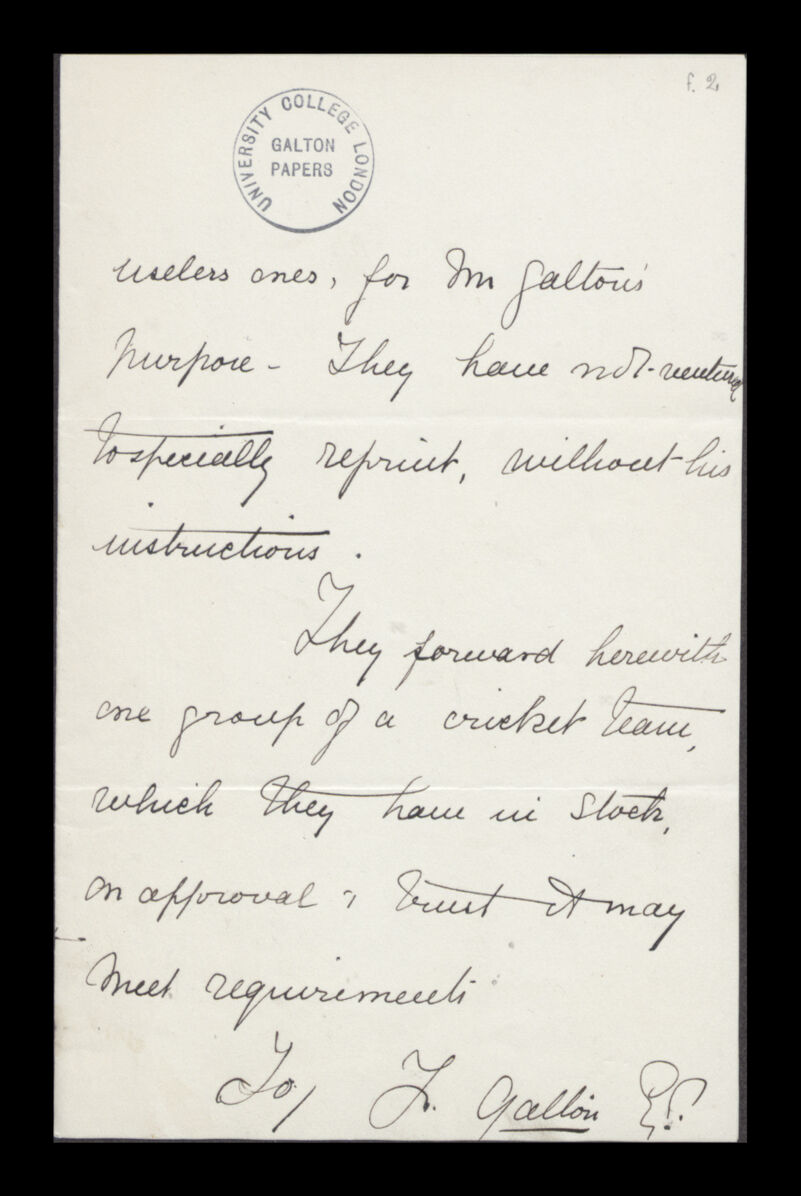 f. 2
UNIVERSITY COLLEGE LONDON
GALTON
PAPERS
useless ones, for Mr Galton's
purpose - They have not ventured
to specially reprint, without his
instructions.
They forward herewith
one group of a cricket team,
which they have in stock,
on approval & trust it may
meet requirements
To, F. Galton Esq.